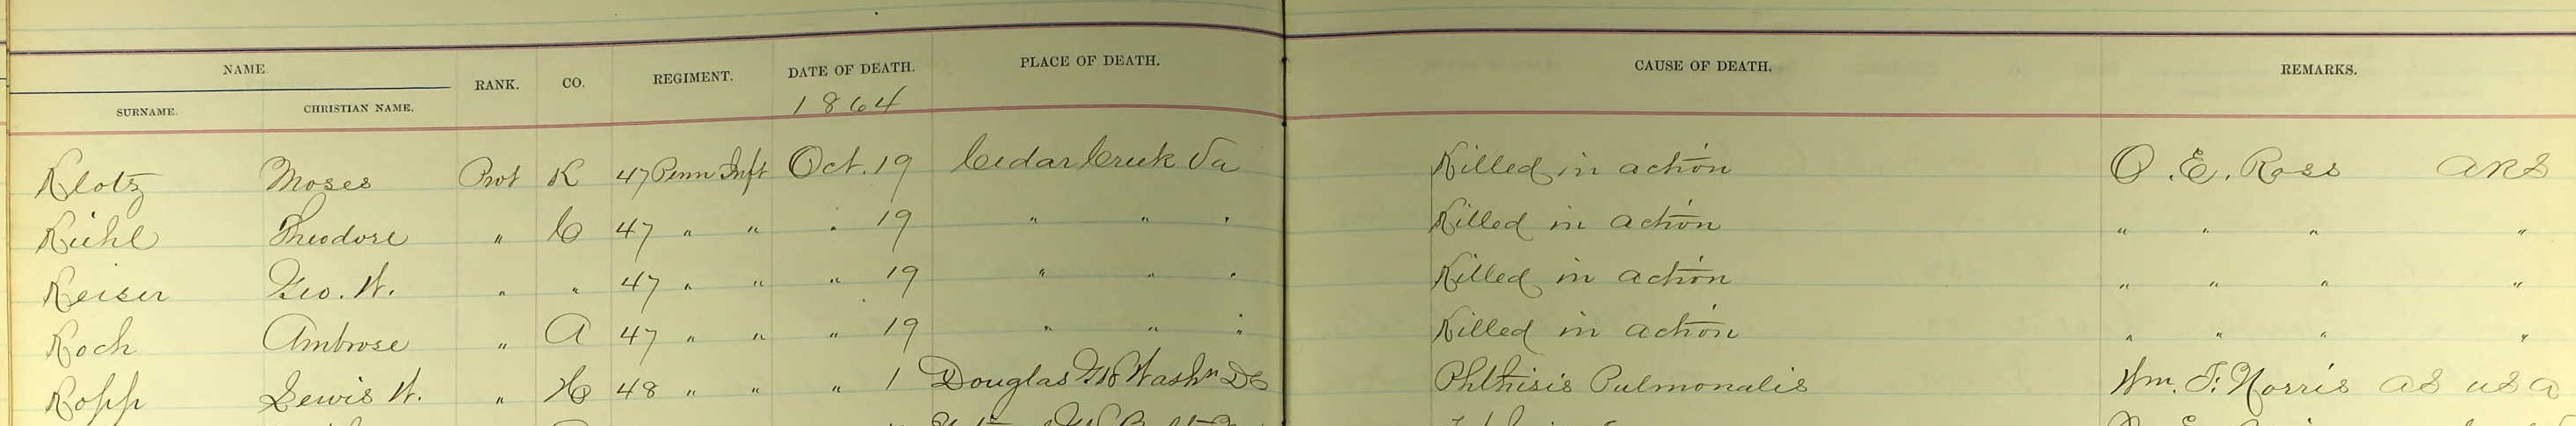 NAME. RANK. CO. REGIMENT. DATE OF DEATH. PLACE OF DEATH. CAUSE OF DEATH. REMARKS.
SURNAME. CHRISTIAN NAME. 1864
Klotz Moses Prvt K 47 Penn Inft Oct. 19 Cedar Creek Va Killed in action O. E. Ross ARS
Kiehl Theodore " C 47 " " " 19 " " " Killed in action " " " "
Keiser Geo. W. " " 47 " " " 19 " " " Killed in action " " " "
Koch Ambrose " A 47 " " " 19 " " " Killed in action " " " "
Kopp Lewis W. " H 48 " " " 1 Douglas GH Washn DC Phthisis Pulmonalis Wm. F. Norris AS USA